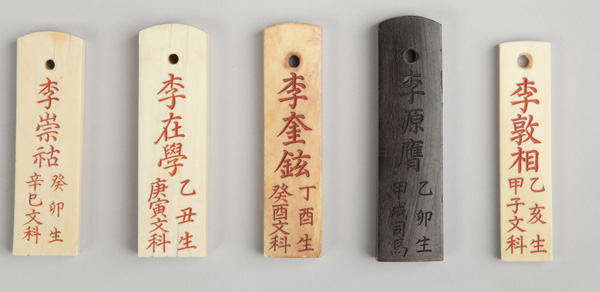 李崇祜
癸卯生
辛巳文科
李在學
乙丑生
庚寅文科
李奎鉉
丁酉生
癸酉文科
李源膺
乙卯生
甲戌司馬
李敦相
乙亥生
甲子文科